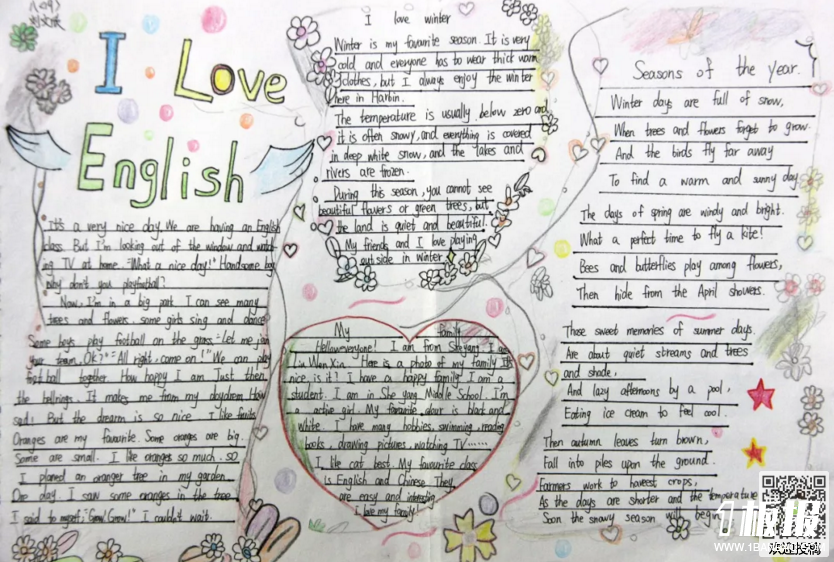 I Love
English
It's a very nice day. We are having an English
class. But I'm looking out of the window and watch-
ing TV at home. "What a nice day!" Handsome boy
why don't you play football?
Now, I'm in a big park I can see many
trees and flowers. some girls sing and dance
Some boys play football on the grass. "Let me join
your team, OK?" "All right, come on!" We can play
football together How happy I am Just then
the bell rings. It makes me from my daydream How
sad! But the drearm is so nice I like fruits
Oranges are my favourite. Some oranges are big.
Some are small. I like oranges so much. so
I planed an oranger tree in my garden
One day. I saw some oranges in the tree
I said to myself, "Grow! Grow!" I couldn't wait.
I love winter
Winter is my favorite season. It is very
cold and everyone has to wear thick warm
clothes, but I always enjoy the winter
here in Harbin.
The temperature is usually below zero and
it is often snowy, and everything is covered
in deep white snow, and the lakes and
rivers are frozen.
During this season, you cannot see
beautiful flowers or green trees, but
the land is quiet and beautiful.
My friends and I love playing
outside in winter
My family
Hello everyone! I am from I
in Wen Xin. Here is a photo of my family It's
nice, is it? I have a happy family I am a
student. I am in She yang Middle School. I'm
a active girl. My favorite colour is black and
white. I have many hobbies, swimming, reading
books, drawing pictures, watching TV......
I like cat best. My favourite class
is English and Chinese. They
are easy and interesting.
I love my family!
Seasons of the year.
Winter days are full of snow,
When trees and flowers forget to grow.
And the birds fly far away
To find a warm and sunny day
The days of spring are windy and bright.
What a perfect time to fly a kite!
Bees and butterflies play among flowers,
Then hide from the April showers.
Those sweet memories of summer days.
Are about quiet streams and trees
and shade,
And lazy afternoons by a pool,
Eating ice cream to feel cool.
Then autumn leaves turn brown,
Fall into piles upon the ground.
Farmers work to havest crops,
As the days are shorter and the temperature
Soon the snowy season will begin
1板报
WWW.1BANBAO.COM
欢迎投稿